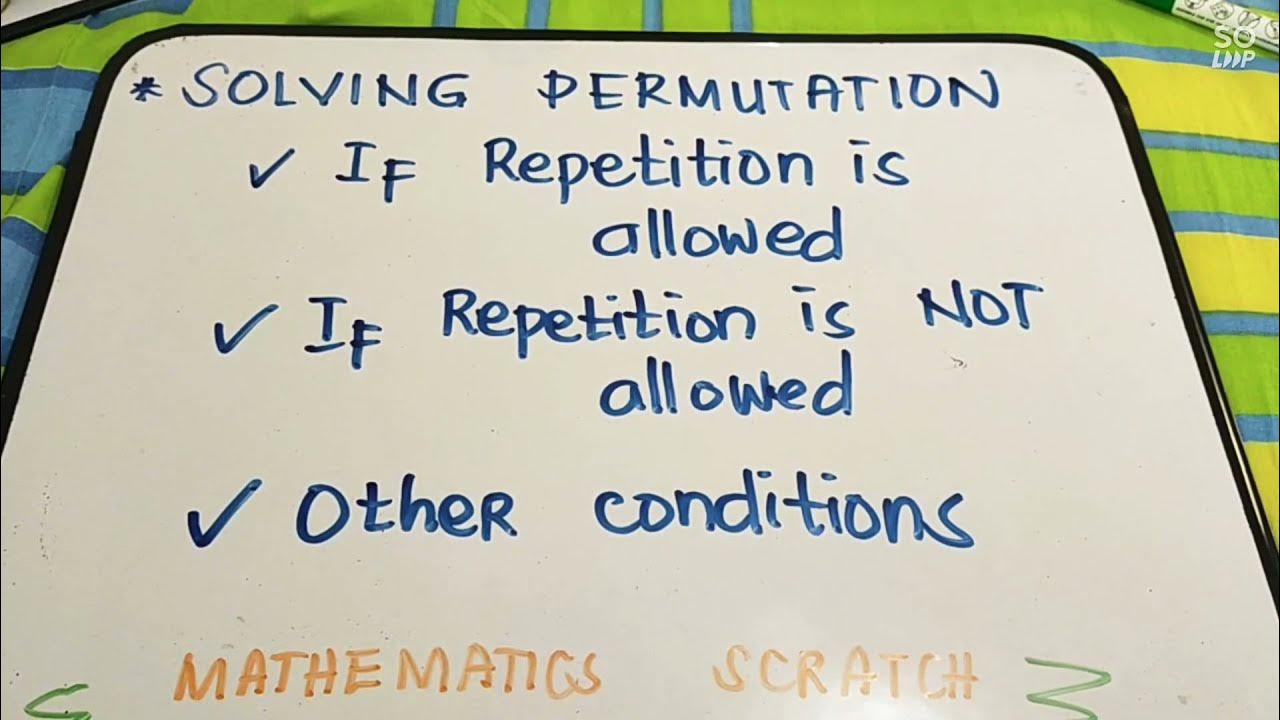 * SOLVING PERMUTATION
✓ IF Repetition is
allowed
✓ IF Repetition is NOT
allowed
✓ OtheR conditions
MATHEMATICS SCRATCH
SO
LOOP